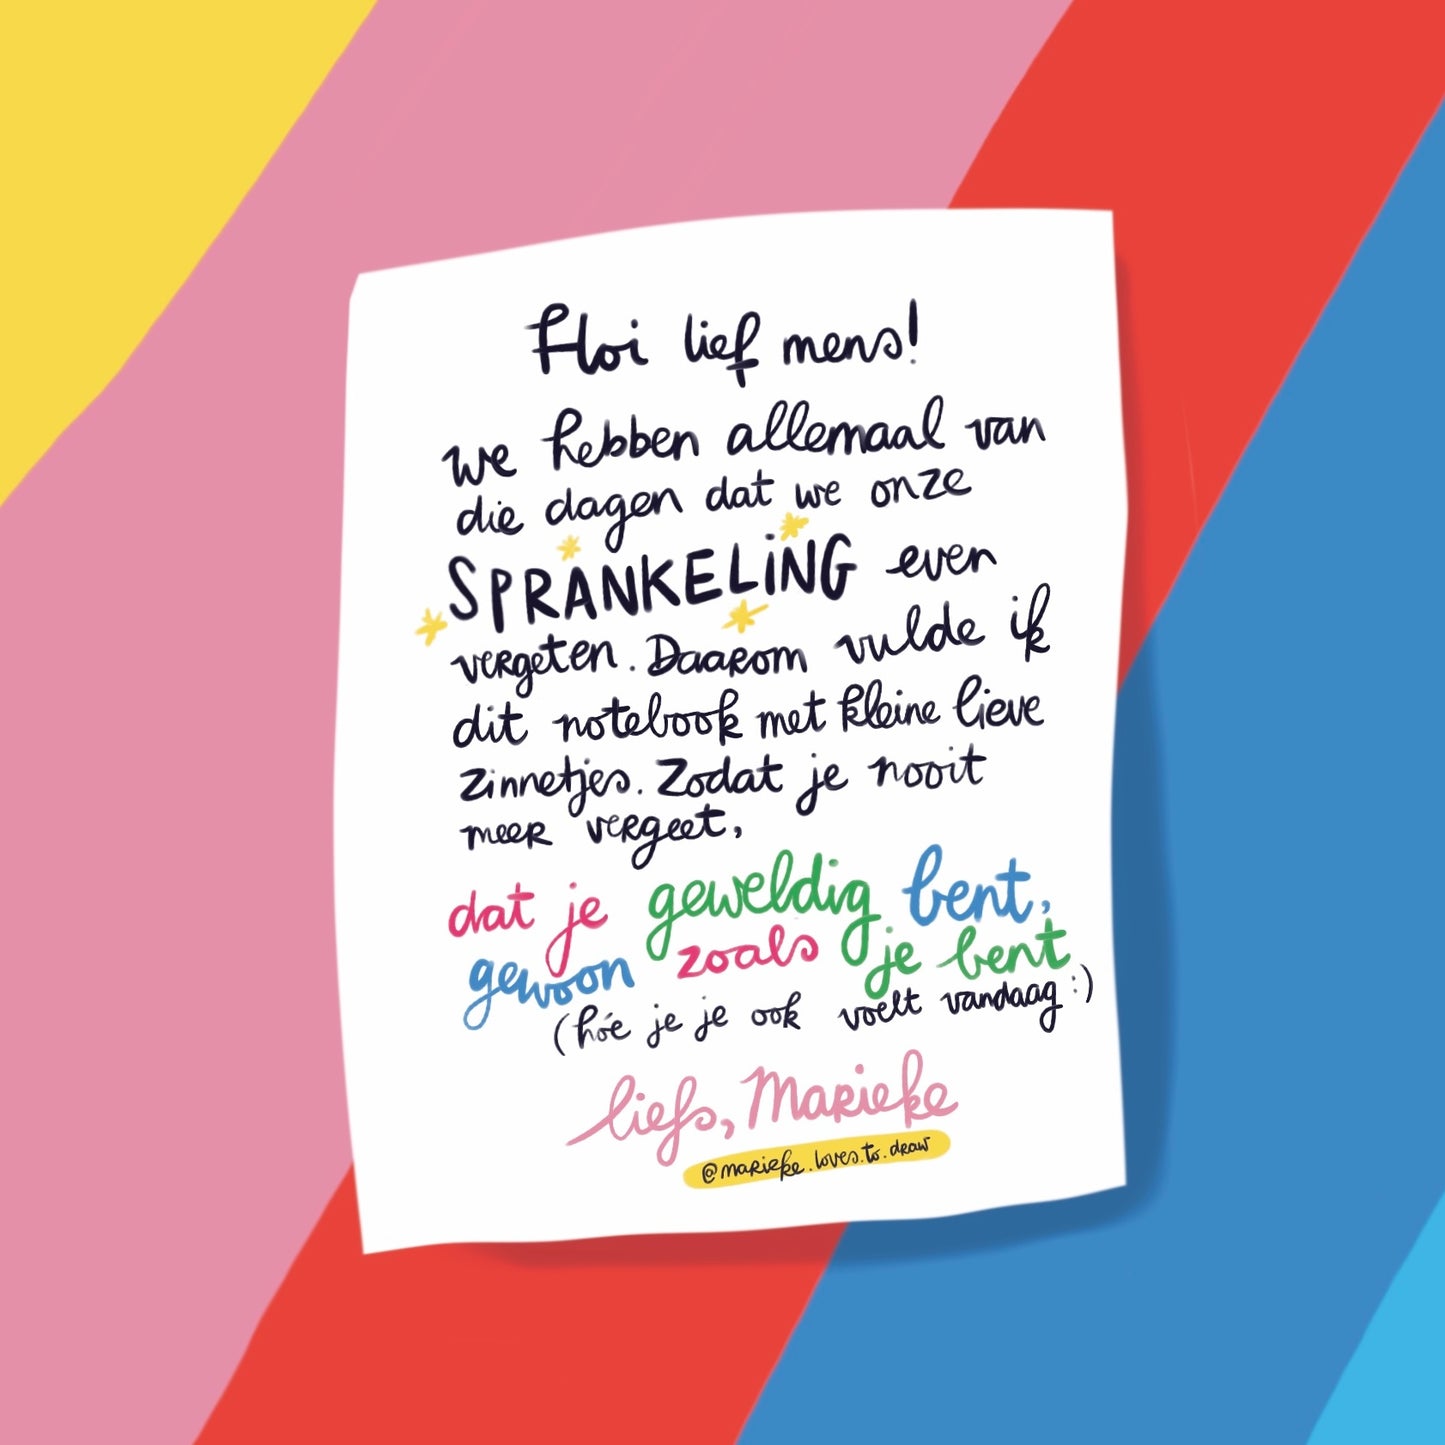 Hoi lief mens!
we hebben allemaal van
die dagen dat we onze
SPRANKELING even
vergeten. Daarom vulde ik
dit notebook met kleine lieve
zinnetjes. Zodat je nooit
meer vergeet,
dat je geweldig bent,
gewoon zoals je bent
(hóe je je ook voelt vandaag :)
liefs, Marieke
@marieke.loves.to.draw